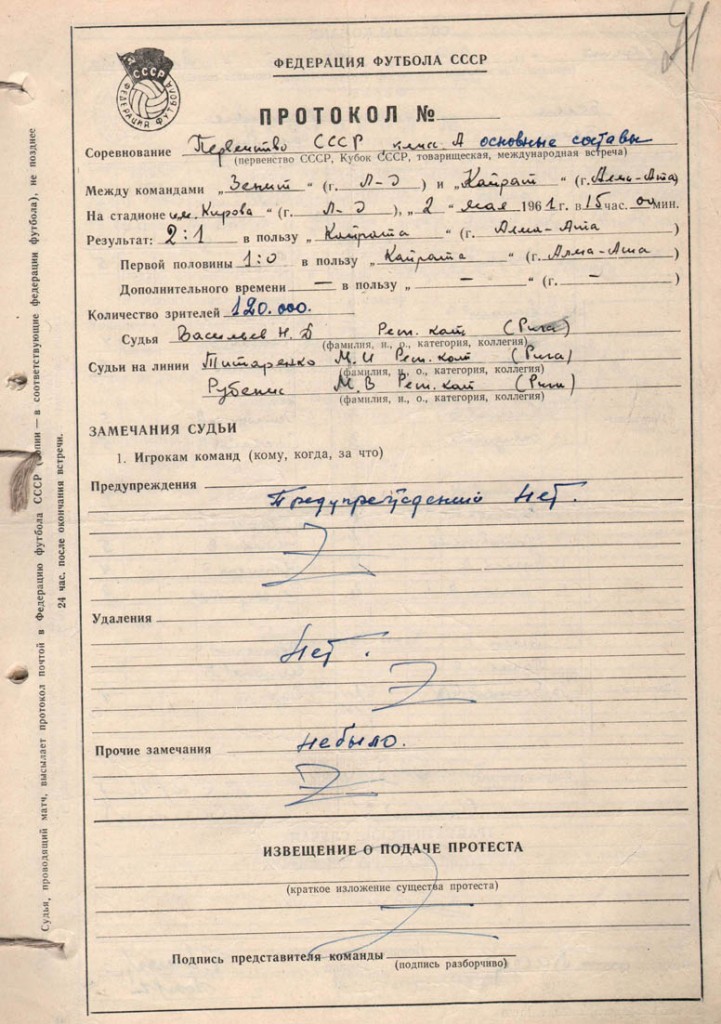 СССР
ФЕДЕРАЦИЯ ФУТБОЛА
ФЕДЕРАЦИЯ ФУТБОЛА СССР
ПРОТОКОЛ №
Соревнование Первенство СССР, класс А основные составы
(первенство СССР, Кубок СССР, товарищеская, международная встреча)
Между командами „Зенит“ (г. Л-Д) и „Кайрат“ (г. Алма-Ата)
На стадионе им. Кирова“ (г. Л-Д), „2“ мая 1961 г. в 15 час. 00 мин.
Результат: 2:1 в пользу „Кайрата“ (г. Алма-Ата)
Первой половины 1:0 в пользу „Кайрата“ (г. Алма-Ата)
Дополнительного времени — в пользу „ — “ (г. — )
Количество зрителей 120.000.
Судья Васильев Н. Д Респ. кат (Рига)
(фамилия, и., о., категория, коллегия)
Судьи на линии Титаренко М. И Респ. кат (Рига)
(фамилия, и., о., категория, коллегия)
Рубенис М. В Респ. кат (Рига)
(фамилия, и., о., категория, коллегия)
ЗАМЕЧАНИЯ СУДЬИ
1. Игрокам команд (кому, когда, за что)
Предупреждения
Предупреждений нет.
Удаления
Нет.
Прочие замечания небыло.
ИЗВЕЩЕНИЕ О ПОДАЧЕ ПРОТЕСТА
(краткое изложение существа протеста)
Подпись представителя команды
(подпись разборчиво)
Судья, проводящий матч, высылает протокол почтой в Федерацию футбола СССР (копии — в соответствующие федерации футбола), не позднее
24 час. после окончания встречи.